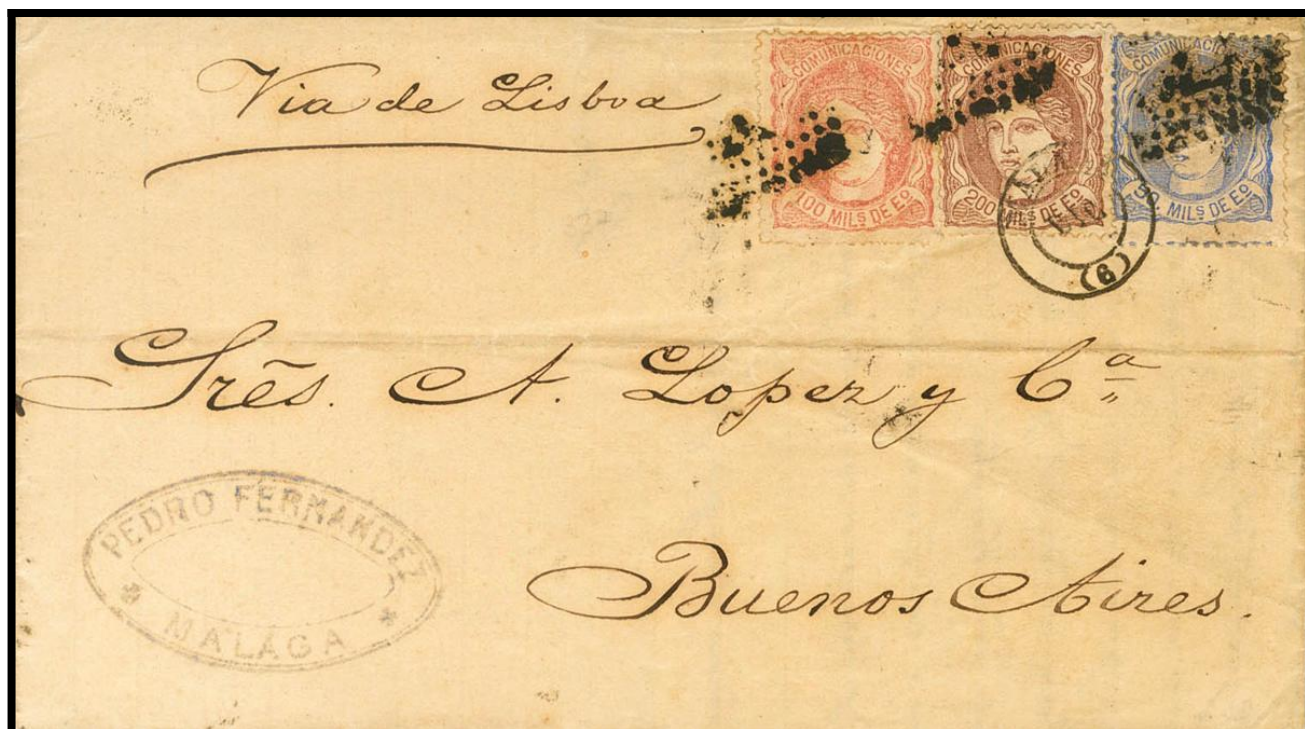 Via de Lisboa
COMUNICACIONES
100 MILS DE Eº
COMUNICACIONES
200 MILS DE Eº
COMUNICACIO
50 MILS DE Eº
(9)
Srẽs. A. Lopez y Cª
PEDRO FERNANDEZ
MALAGA
Buenos Aires.